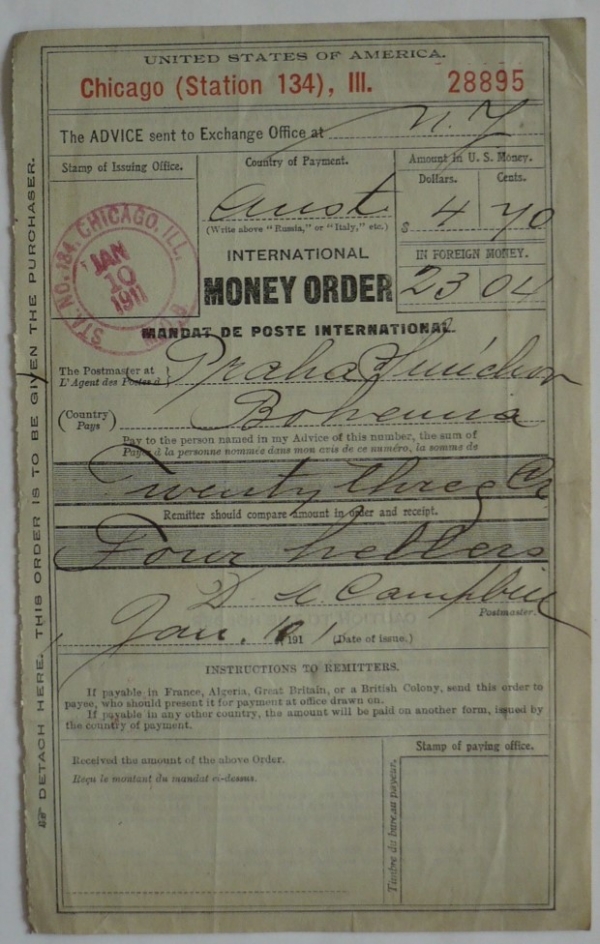 UNITED STATES OF AMERICA.
Chicago (Station 134), Ill. 28895
The ADVICE sent to Exchange Office at N.Y.
Stamp of Issuing Office.
STA. NO. 134, CHICAGO, ILL.
JAN
10
1911
Country of Payment.
Aust
(Write above "Russia," or "Italy," etc.)
Amount in U. S. Money.
Dollars. Cents.
$ 4 70
IN FOREIGN MONEY.
23 04
INTERNATIONAL
MONEY ORDER
MANDAT DE POSTE INTERNATIONAL.
The Postmaster at Praha
L'Agent des Postes à
(Country) Bohemia
Pays
Pay to the person named in my Advice of this number, the sum of
Payez à la personne nommée dans mon avis de ce numéro, la somme de
Twenty three Cr
Remitter should compare amount in order and receipt.
Four hellers
Campbell
Postmaster.
Jan. 10 1911 (Date of issue.)
INSTRUCTIONS TO REMITTERS.
If payable in France, Algeria, Great Britain, or a British Colony, send this order to
payee, who should present it for payment at office drawn on.
If payable in any other country, the amount will be paid on another form, issued by
the country of payment.
Received the amount of the above Order.
Reçu le montant du mandat ci-dessus.
Stamp of paying office.
Timbre du bureau payeur.
DETACH HERE. THIS ORDER IS TO BE GIVEN THE PURCHASER.